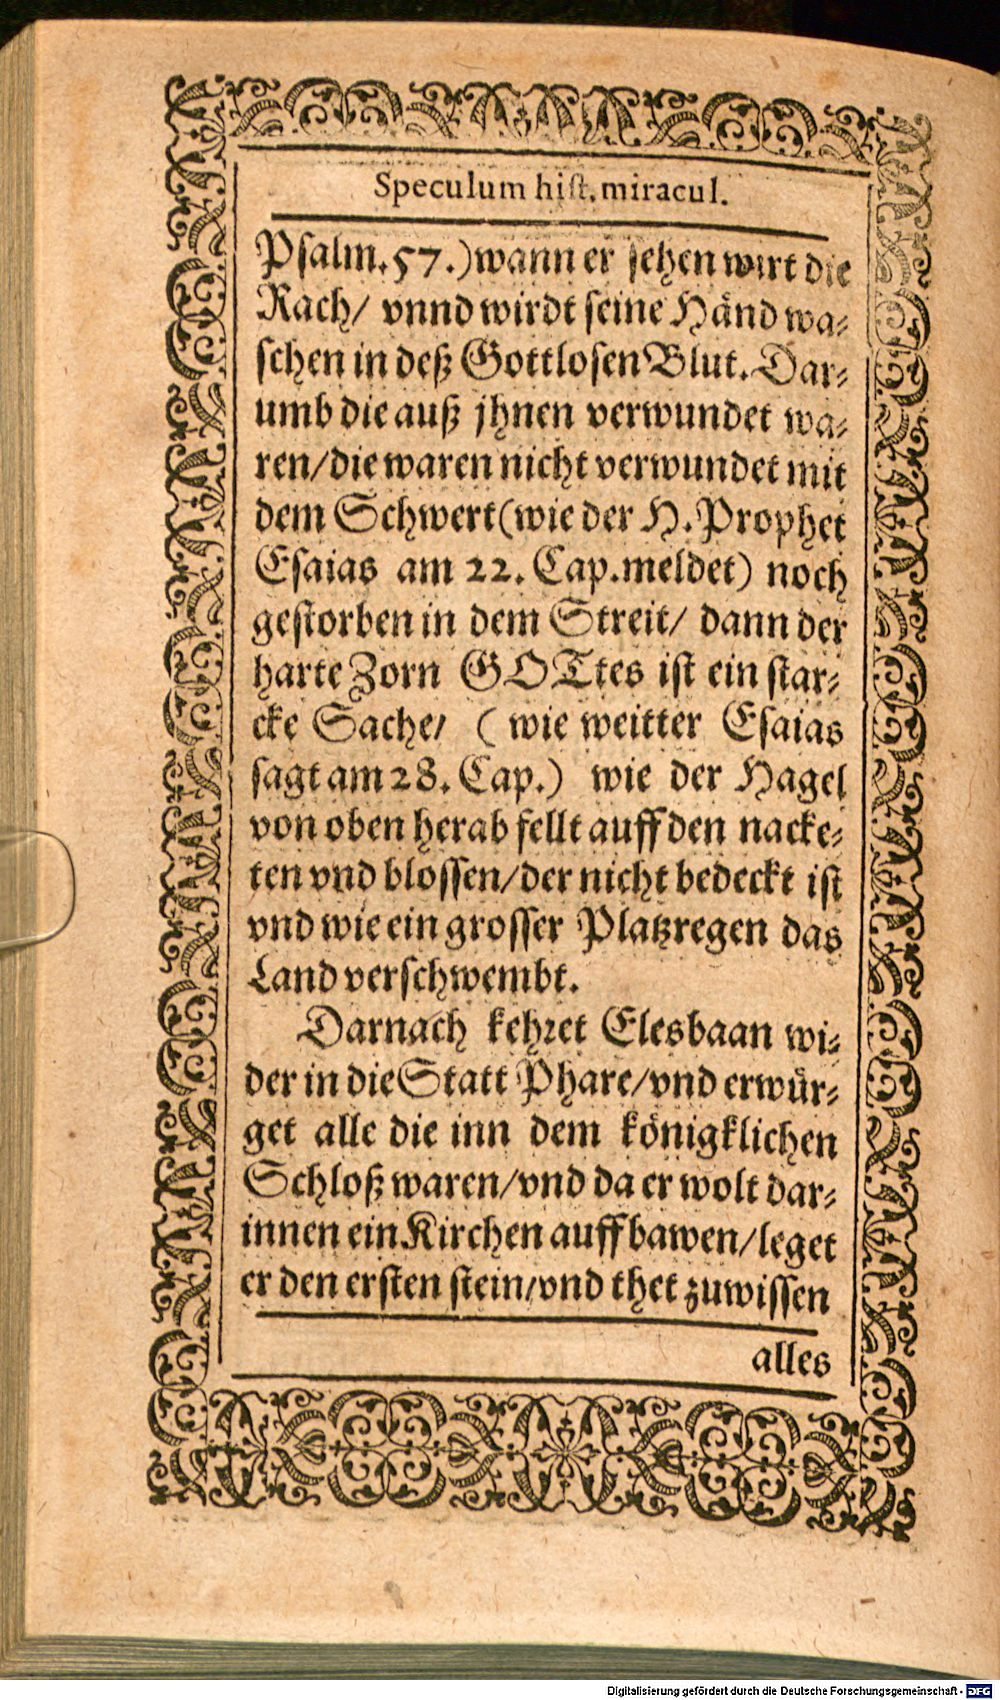 Speculum hiſt. miracul.
Pſalm. 57.) wann er ſehen wirt die
Rach/ vnnd wirdt ſeine Händ wa⸗
ſchen in deß Gottloſen Blut. Dar⸗
umb die auß jhnen verwundet wa⸗
ren/die waren nicht verwundet mit
dem Schwert(wie der H. Prophet
Eſaias am 22. Cap. meldet) noch
geſtorben in dem Streit/ dann der
harte Zorn GOTtes iſt ein ſtar⸗
cke Sache/ ( wie weitter Eſaias
ſagt am 28. Cap.) wie der Hagel
von oben herab fellt auff den nacke⸗
ten vnd bloſſen/der nicht bedeckt iſt
vnd wie ein groſſer Platzregen das
Land verſchwembt.
Darnach kehret Elesbaan wi⸗
der in die Statt Phare/vnd erwür⸗
get alle die inn dem königklichen
Schloß waren/vnd da er wolt dar⸗
innen ein Kirchen auff bawen/leget
er den erſten ſtein/vnd thet zuwiſſen
alles
Digitalisierung gefördert durch die Deutsche Forschungsgemeinschaft - DFG